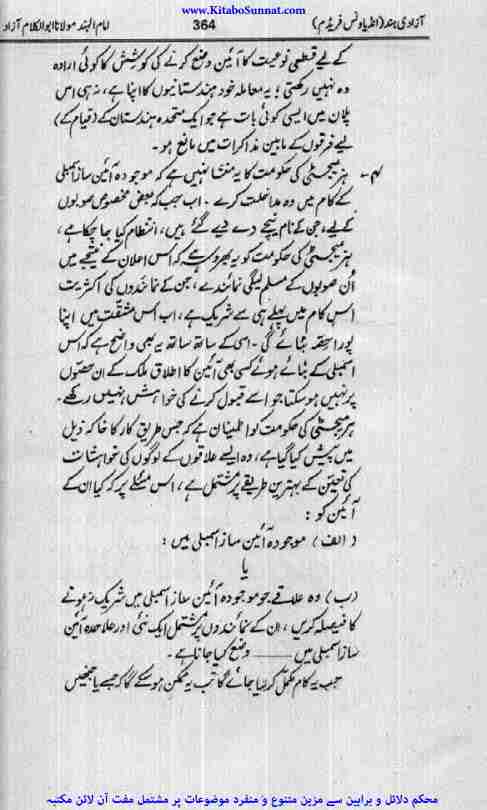 www.KitaboSunnat.com
آزادی ہند (انڈیا ونس فریڈم) 364 امام الہند مولانا ابوالکلام آزاد
کے لیے قطعی نوعیت کا آئین وضع کرنے کی کوشش کا کوئی ارادہ
وہ نہیں رکھتی؛ یہ معاملہ خود ہندستانیوں کا اپنا ہے، نہ ہی اس
پلان میں ایسی کوئی بات ہے جو ایک متحدہ ہندستان کے (قیام کے)
لیے فرقوں کے مابین مذاکرات میں مانع ہو۔
۴۔ ہز میجسٹی کی حکومت کا یہ منشا نہیں ہے کہ موجودہ آئین ساز اسمبلی
کے کام میں وہ مداخلت کرے۔ اب جب کہ بعض مخصوص صوبوں
کے لیے، جن کے نام نیچے دے دیے گئے ہیں، انتظام کیا جا چکا ہے،
ہز میجسٹی کی حکومت کو یہ بھروسہ ہے کہ اس اعلان کے نتیجے میں
اُن صوبوں کے مسلم لیگی نمائندے، جن کے نمائندوں کی اکثریت
اس کام میں پہلے ہی سے شریک ہے، اب اُس مشقّت میں اپنا
پورا حصّہ بٹائے گی۔ اسی کے ساتھ ساتھ یہ بھی واضح ہے کہ اس
اسمبلی کے بنائے ہوئے کسی بھی آئین کا اطلاق ملک کے ان حصّوں
پر نہیں ہو سکتا جو اسے قبول کرنے کی خواہش نہیں رکھتے۔
ہز میجسٹی کی حکومت کو اطمینان ہے کہ جس طریقِ کار کا خاکہ ذیل
میں پیش کیا گیا ہے، وہ ایسے علاقوں کے لوگوں کی خواہشات
کی تعیّن کے بہترین طریقے پر مشتمل ہے، اس مسئلے پر کہ کیا ان کے
آئین کو:
(الف) موجودہ آئین ساز اسمبلی میں:
یا
(ب) وہ علاقے جو موجودہ آئین ساز اسمبلی میں شریک نہ ہونے
کا فیصلہ کریں، ان کے نمائندوں پر مشتمل ایک نئی اور علاحدہ آئین
ساز اسمبلی میں ـــــــ وضع کیا جانا ہے۔
جب یہ کام مکمل کر لیا جائے گا تب یہ ممکن ہو سکے گا کہ جسے یا جنھیں
محکم دلائل و براہین سے مزین متنوع و منفرد موضوعات پر مشتمل مفت آن لائن مکتبہ